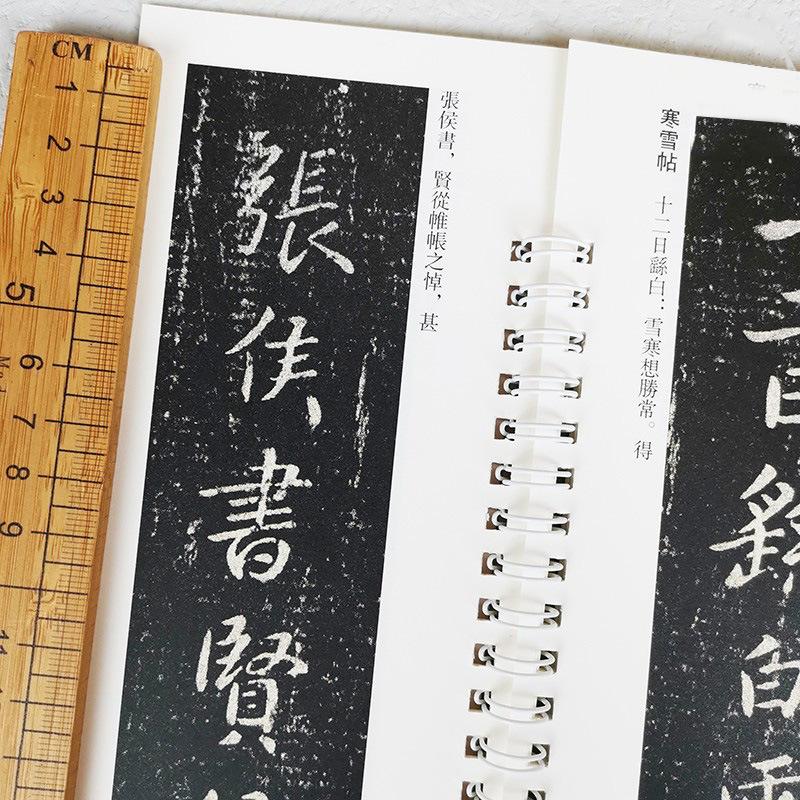 CM
1
2
3
4
5
6
7
8
9
11
張侯書賢
張侯書，賢從帷帳之悼，甚
寒雪帖
十二日繇白：雪寒想勝常。得
十二日繇白雪